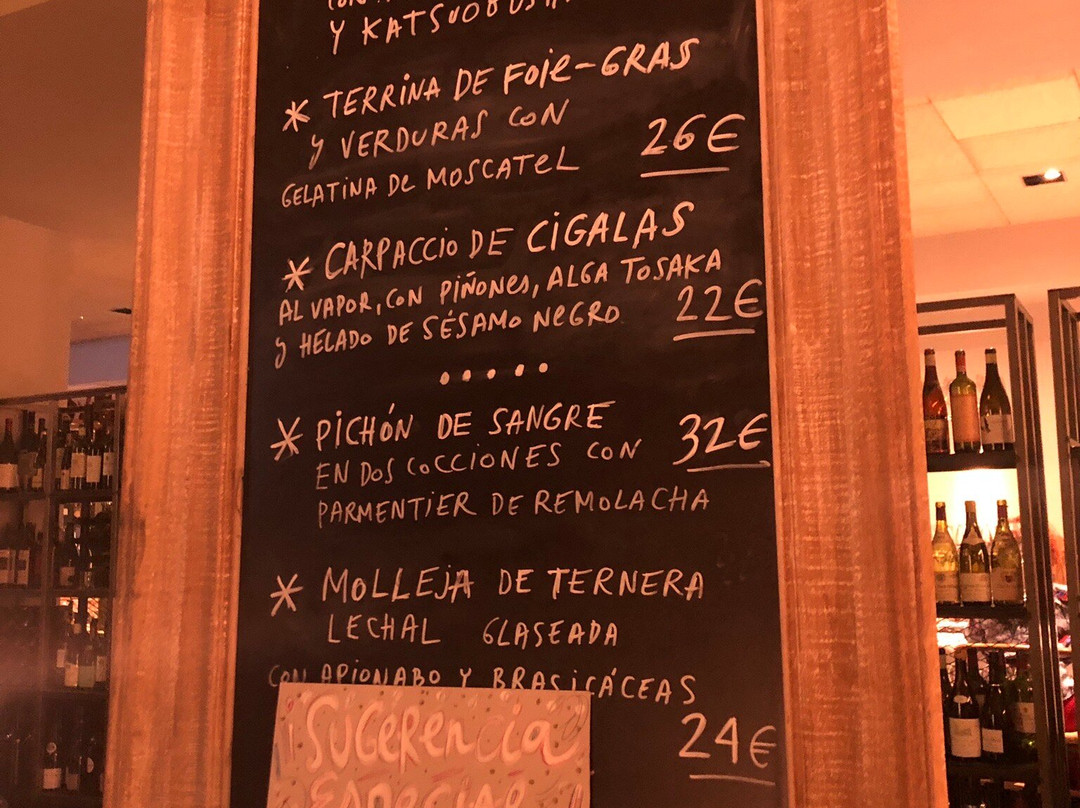 Y KATSUOBUSHI
* TERRINA DE FOIE-GRAS
y VERDURAS CON
GELATINA DE MOSCATEL 26€
* CARPACCIO DE CIGALAS
AL VAPOR, CON PIÑONES, ALGA TOSAKA
y HELADO DE SÉSAMO NEGRO 22€
.....
* PICHÓN DE SANGRE 32€
EN DOS COCCIONES CON
PARMENTIER DE REMOLACHA
* MOLLEJA DE TERNERA
LECHAL GLASEADA
CON APIONABO Y BRASICÁCEAS
24€
SUGERENCIA